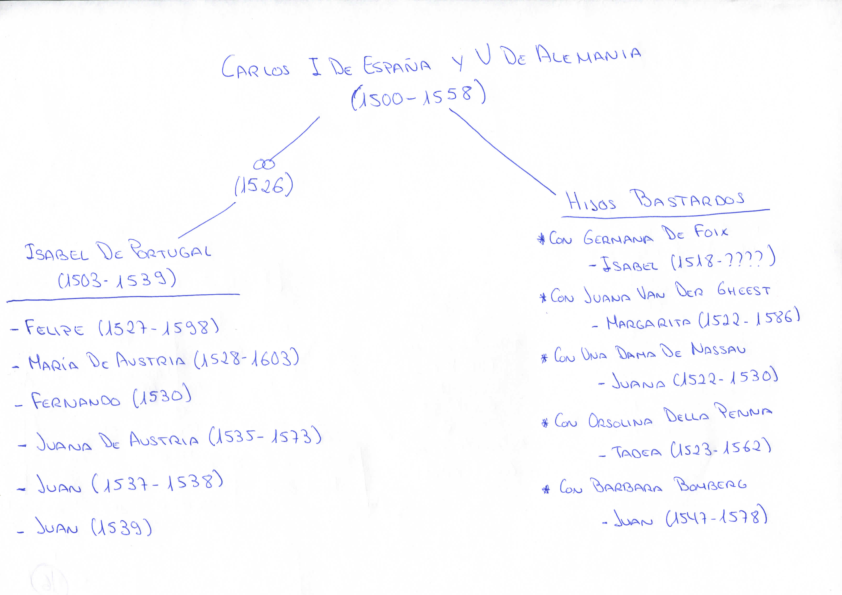 CARLOS I DE ESPAÑA Y V DE ALEMANIA
(1500-1558)
(1526)
ISABEL DE PORTUGAL
(1503-1539)
- FELIPE (1527-1598)
- MARÍA DE AUSTRIA (1528-1603)
- FERNANDO (1530)
- JUANA DE AUSTRIA (1535-1573)
- JUAN (1537-1538)
- JUAN (1539)
HIJOS BASTARDOS
* CON GERMANA DE FOIX
- ISABEL (1518-????)
* CON JUANA VAN DER GHEEST
- MARGARITA (1522-1586)
* CON UNA DAMA DE NASSAU
- JUANA (1522-1530)
* CON ORSOLINA DELLA PENNA
- TADEA (1523-1562)
* CON BARBARA BOMBERG
- JUAN (1547-1578)